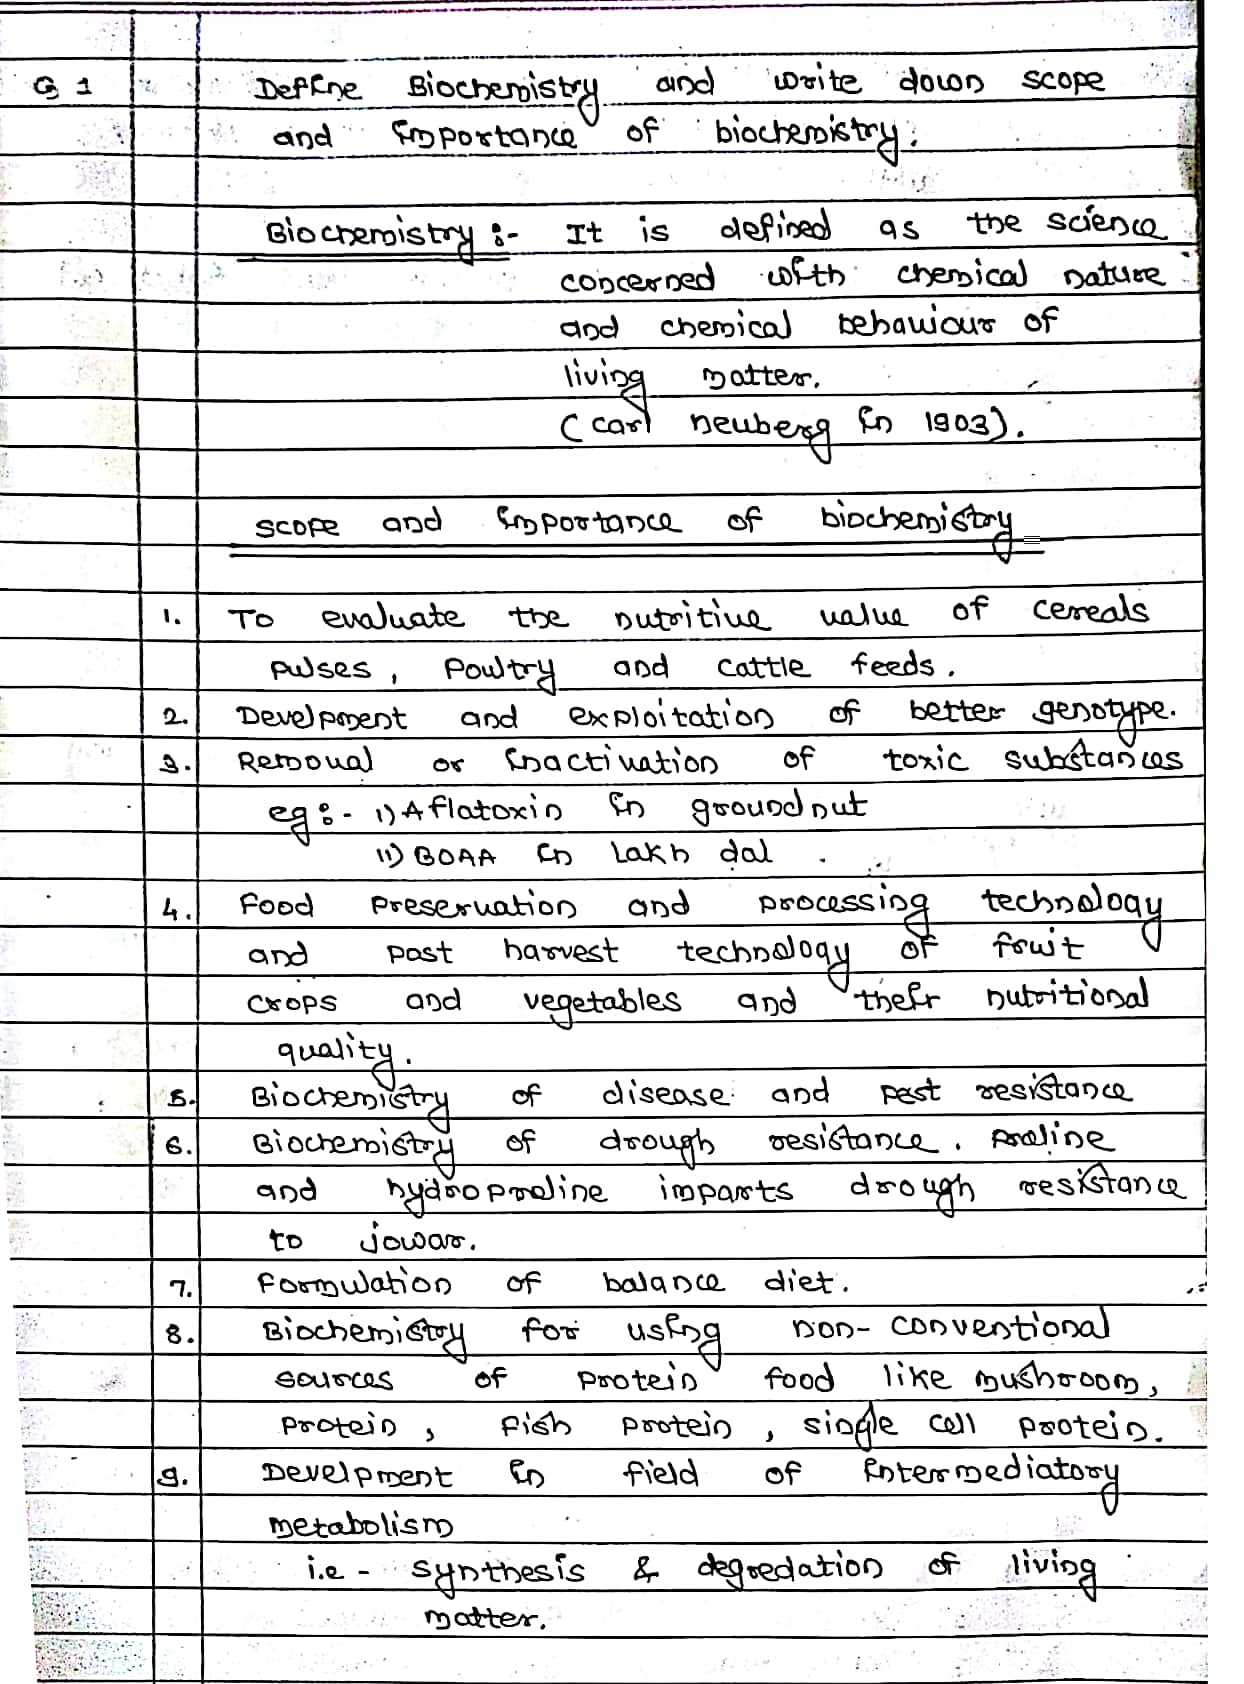 Q 1 Define Biochemistry and write down scope
and importance of biochemistry.
Biochemistry :- It is defined as the science
concerned with chemical nature
and chemical behaviour of
living matter.
( Carl Neuberg in 1903).
scope and importance of biochemistry
1. To evaluate the nutritive value of cereals
pulses, Poultry and cattle feeds.
2. Develpment and exploitation of better genotype.
3. Removal or inactivation of toxic substances
eg :- i) Aflatoxin in groundnut
ii) BOAA in Lakh dal .
4. Food Preservation and processing technology
and post harvest technology of fruit
crops and vegetables and their nutritional
quality.
5. Biochemistry of disease and pest resistance
6. Biochemistry of drough resistance. Proline
and hydroproline imparts drough resistance
to jowar.
7. Formulation of balance diet.
8. Biochemistry for using non-conventional
sources of protein food like mushroom,
protein, fish protein, single cell protein.
9. Develpment in field of intermediatory
metabolism
i.e - synthesis & degredation of living
matter.